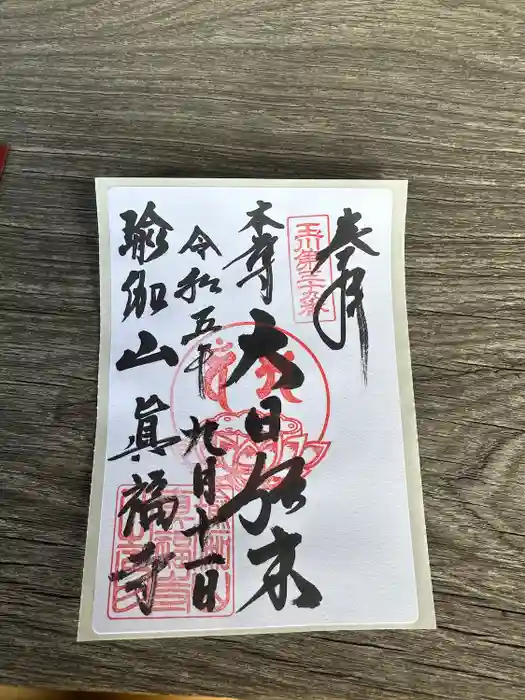 奉拝
玉川第三十九番
本尊 大日如来
令和五年 九月十一日
瑜伽山 眞福寺